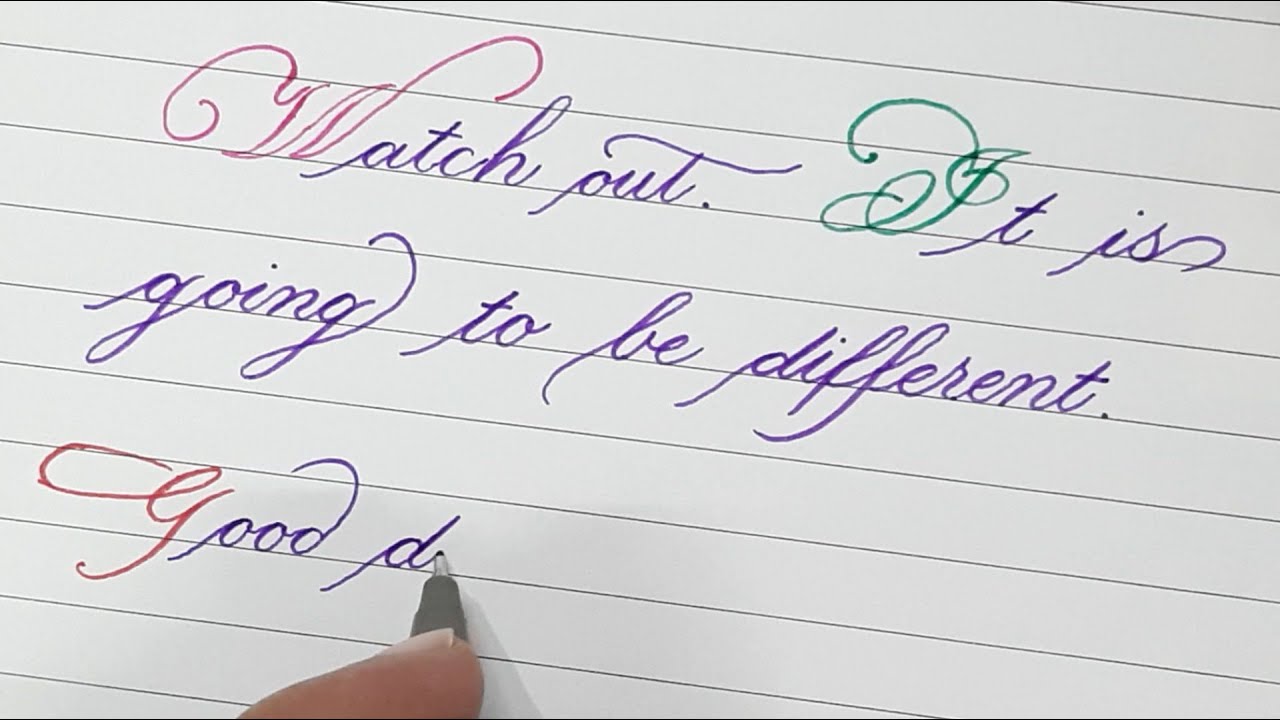 Watch out. It is
going to be different.
Good d